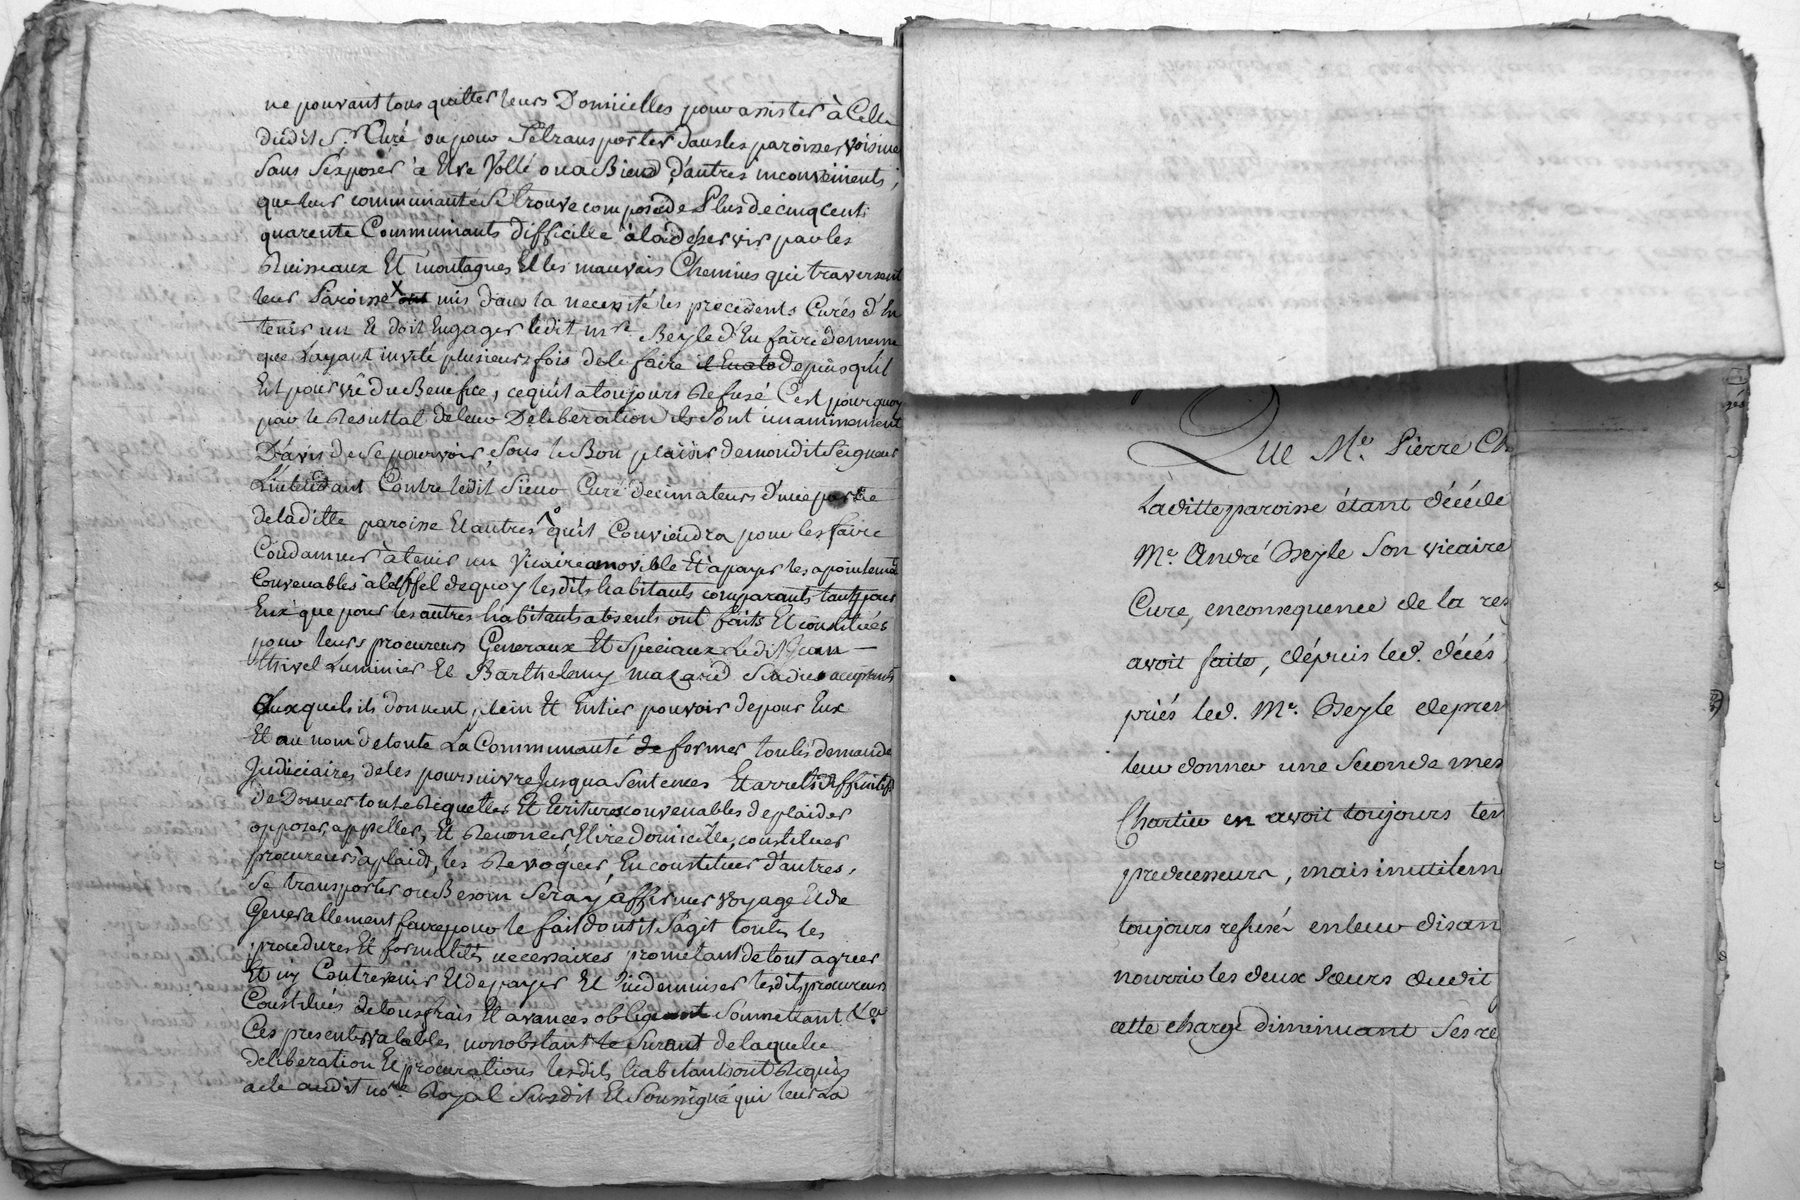 ne pouvant tous quitter leurs Domicilles pour assister à Celle
dudit Sr. Curé ou pour Se transporter dans les paroisses voisine
Sans S'exposer à Etre Vollé ou a Biend d'autres inconveinients,
que leur communauté Se trouve composéde Plus de cinq cent
quarente Communiants difficille à la déservir par les
Ruisseaux Et montagnes Et les mauvais Chemins qui traversent
leur Paroisse X ont mis dans la necessité les precedents Curés d'En
tenir un Et doit Engager ledit mre. Beyle d'En faire de meme
que L'ayant invité plusieurs fois de le faire depuis qu'il
Est pourvû du Benefice, ce qu'il a toujours Refusé C'est pourquoy
par le Resultat de leur Deliberation ils Sont unanimement
D'avis de Se pourvoir, Sous le Bon plaisir de mondit Seigneur
L'intendant Contre ledit Sieur Curé decimateurs d'une partie
de laditte paroisse Et autres qu'il Conviendra pour les faire
Condamner à tenir un Vicaire amovible Et à payer les apointem
Convenables a l'effet de quoy lesdits habitants comparants tant pour
Eux que pour les autres habitants absents ont faits Et constitués
pour leurs procureurs Generaux Et Speciaux Ledit Jean —
thivel Luminier Et Barthelemy mazard Sindics acceptants
Auxquels ils donnent plein Et Entier pouvoir de pour Eux
Et au nom de toute La Communauté de former toutes demande
Judiciaires de les poursuivre Jusqua Sentences Et arrets diffinitifs
de Donner toute Requettes Et Ecritures convenables de plaider
opposer, appeller, Et Renoncer Elire domicille, constituer
procureurs à plaids, les Revoquer, En constituer d'autres,
Se transporter ou Besoin Sera y affirmer voyage Et de
Generallement faire pour le fait dont il S'agit toutes les
procedures Et formalités necessaires prometant de tout agreer
Et n'y Contrevenir Et de payer Et indemniser lesdits procureurs
Constitués de tous frais Et avances obligeant Soumettant &a.
Ces presentes valables nonobstant le Surant de laquelle
deliberation Et procurations lesdits habitants ont Requis
acte audit nore. Royal Susdit Et Soussigné qui leur La
Que Me. Pierre Ch
Laditte paroisse étant décédé
Me. André Beyle Son vicaire
Cure, en consequence de la res
avoit faite, dépuis led. décés
priés led. Me. Beyle de pren
leur donner une Seconde mes
Chartier en avoit toujours ten
predecesseurs, mais inutilem
toujours refusé en leur disan
nourrir les deux Sœurs dudit
cette charge diminuant Ses re